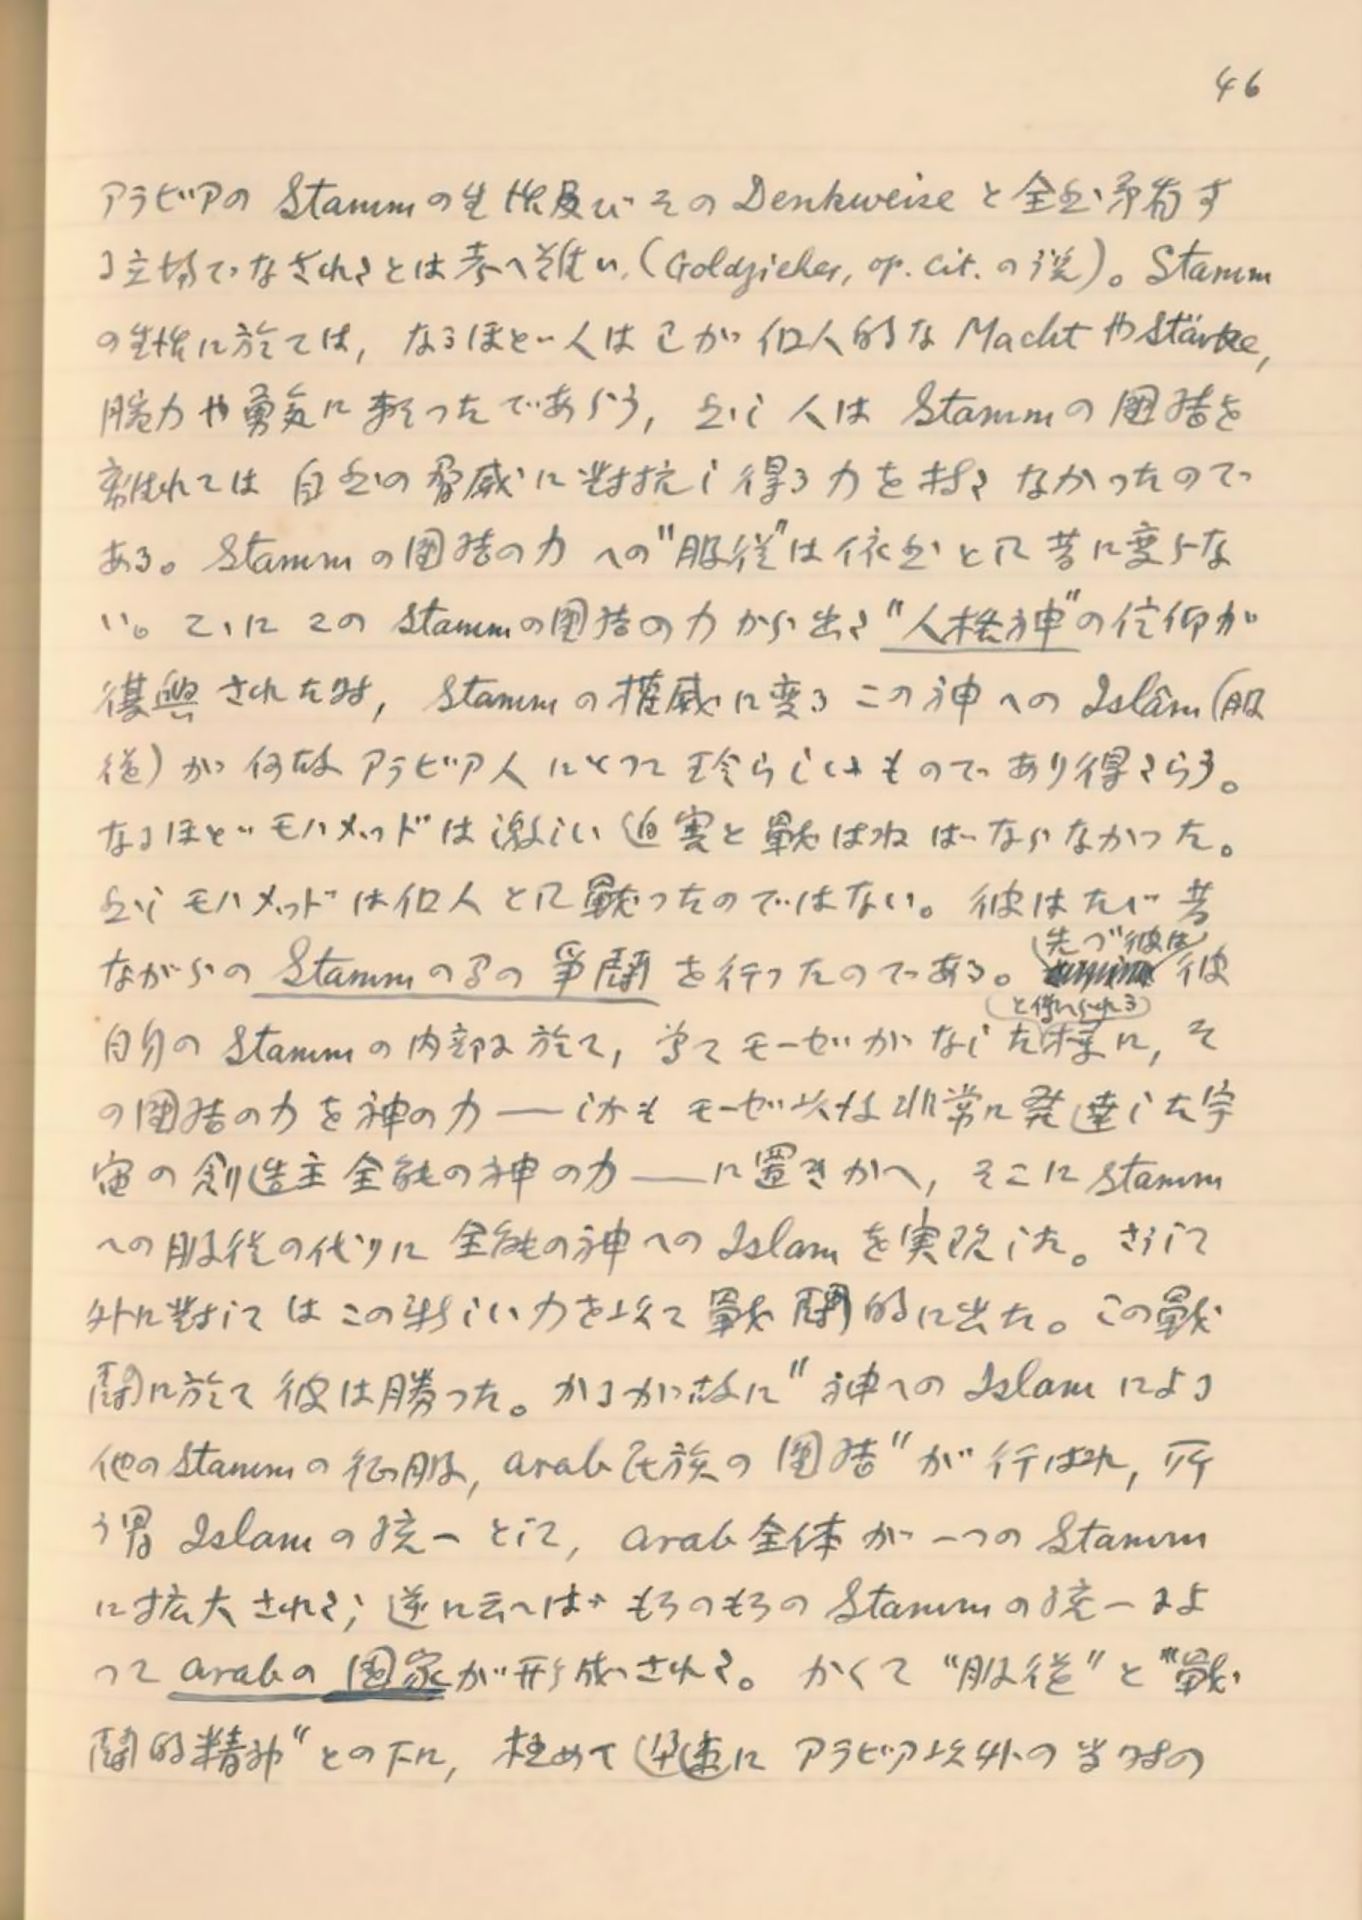 46
アラビアの Stamm の生活及びその Denkweise と全然矛盾す
る立場でなされたとは考へ難い。(Goldzieher, op. cit. の説)。Stamm
の生活に於ては, なるほど人は己が個人的な Macht や Stärke,
腕力や勇気に頼つたであらう, 然し人は Stamm の團結を
離れては自然の脅威に対抗し得る力を持たなかったので
ある。Stamm の團結の力への"服従"は依然として昔に変らな
い。こゝにこの Stamm の團結の力から出た"人格神"の信仰が
復興された時, Stamm の権威に変るこの神への Islâm (服
従) が何故アラビア人にとつて珍らしいものであり得たらう。
なるほどモハメッドは激しい迫害と戦はねばならなかつた。
然しモハメッドは個人として戦つたのではない。彼はたゞ昔
ながらの Stamm の間の爭鬪を行つたのである。先づ彼は彼
自身の Stamm の内部に於て, 嘗てモーゼがなした(と傳へられる)様に, そ
の團結の力を神の力 —— しかもモーゼ以後非常に発達した宇
宙の創造主全能の神の力 —— に置きかへ, そこに Stamm
への服従の代りに全能の神への Islam を実現した。さうして
外に対してはこの新しい力を以て戦鬪的に出た。この戦
鬪に於て彼は勝つた。かるが故に"神への Islam による
他の Stamm の征服, arab 民族の團結"が行はれ, 所
謂 Islam の統一として, arab 全体が一つの Stamm
に拡大された; 逆に云へばもろもろの Stamm の統一によ
つて arab の國家が形成された。かくて"服従"と"戦
鬪的精神"との下に, 極めて迅速にアラビア以外の当時の